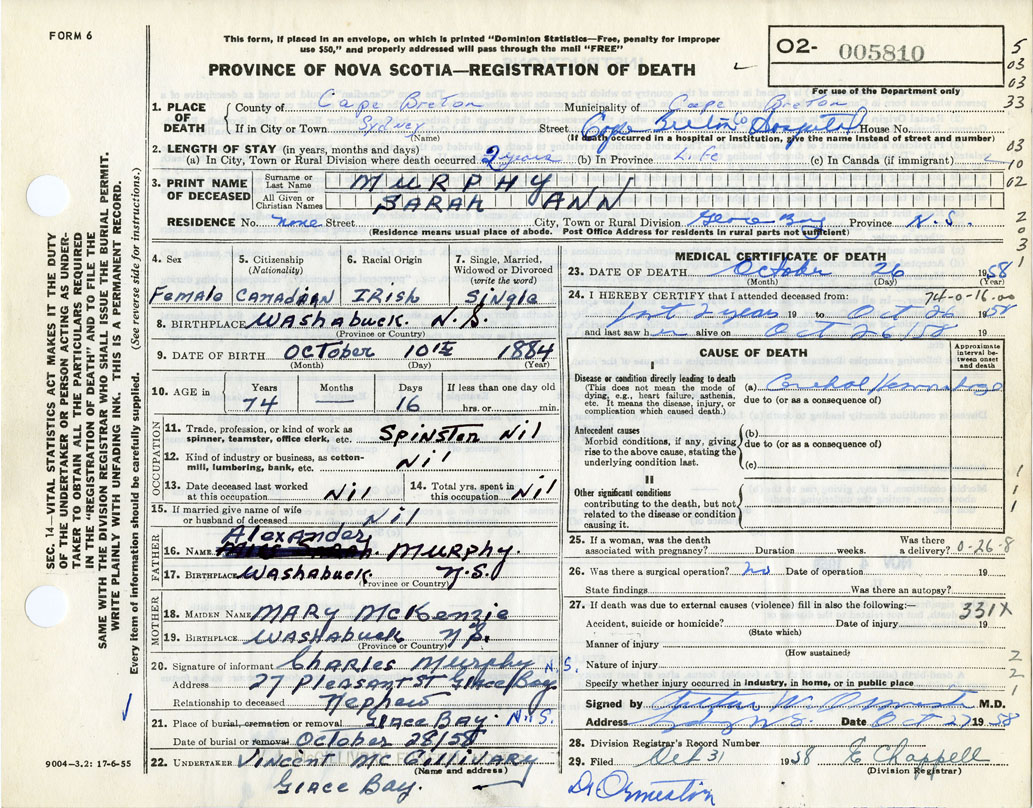 FORM 6
This form, if placed in an envelope, on which is printed "Dominion Statistics—Free, penalty for improper
use $50," and properly addressed will pass through the mail "FREE"
PROVINCE OF NOVA SCOTIA—REGISTRATION OF DEATH
O2- 005810
For use of the Department only
5
03
03
33
1. PLACE OF DEATH { County of Cape Breton Municipality of Cape Breton
If in City or Town Sydney (Name) Street Cape Breton Co Hospital House No.
(If death occurred in a hospital or institution, give the name instead of street and number)
2. LENGTH OF STAY (in years, months and days)
(a) In City, Town or Rural Division where death occurred 2 years (b) In Province Life (c) In Canada (if immigrant)
10
03
3. PRINT NAME OF DECEASED { Surname or Last Name MURPHY
All Given or Christian Names SARAH ANN
02
RESIDENCE No. none Street City, Town or Rural Division Glace Bay Province N.S.
(Residence means usual place of abode. Post Office Address for residents in rural parts not sufficient)
2
0
3
1
4. Sex Female
5. Citizenship (Nationality) CANADIAN
6. Racial Origin IRISH
7. Single, Married, Widowed or Divorced (write the word) Single
8. BIRTHPLACE WASHABUCK N.S.
(Province or Country)
9. DATE OF BIRTH OCTOBER 10th 1884
(Month) (Day) (Year)
10. AGE in { Years 74 Months — Days 16 If less than one day old hrs. or min.
OCCUPATION
11. Trade, profession, or kind of work as spinner, teamster, office clerk, etc. SPINSTER Nil
12. Kind of industry or business, as cotton-mill, lumbering, bank, etc. Nil
13. Date deceased last worked at this occupation Nil
14. Total yrs. spent in this occupation Nil
15. If married give name of wife or husband of deceased Nil
FATHER
Alexander
16. NAME MURPHY.
17. BIRTHPLACE WASHABUCK N.S.
(Province or Country)
MOTHER
18. MAIDEN NAME MARY McKenzie
19. BIRTHPLACE WASHABUCK N.S.
(Province or Country)
20. Signature of informant Charles Murphy N.S.
Address 27 PLEASANT ST GLACE BAY
Relationship to deceased Nephew
21. Place of burial, cremation or removal GLACE BAY. N.S.
Date of burial or removal October 28/58
22. UNDERTAKER VINCENT McGILLIVARY
(Name and address)
GLACE BAY.
MEDICAL CERTIFICATE OF DEATH
23. DATE OF DEATH October 26 1958
(Month) (Day) (Year)
24. I HEREBY CERTIFY that I attended deceased from: 74-0-16.00
last 2 years 19 to Oct 26 1958
and last saw her alive on Oct 26/58 19
CAUSE OF DEATH
Approximate interval between onset and death
I
Disease or condition directly leading to death
(This does not mean the mode of dying, e.g., heart failure, asthenia, etc. It means the disease, injury, or complication which caused death.)
(a) Cerebral Hemorrhage
due to (or as a consequence of)
Antecedent causes
Morbid conditions, if any, giving rise to the above cause, stating the underlying condition last.
(b)
due to (or as a consequence of)
(c)
II
Other significant conditions
contributing to the death, but not related to the disease or condition causing it.
1
1
1
25. If a woman, was the death associated with pregnancy? Duration weeks. Was there a delivery? 0-26-8
26. Was there a surgical operation? No Date of operation 19
State findings Was there an autopsy?
27. If death was due to external causes (violence) fill in also the following:— 331X
Accident, suicide or homicide? (State which) Date of injury 19
Manner of injury
(How sustained)
Nature of injury
Specify whether injury occurred in industry, in home, or in public place
2
2
1
Signed by M.D.
Address Sydney N.S. Date Oct 27 1958
28. Division Registrar's Record Number
29. Filed Oct 31 1958 E Chappell
(Division Registrar)
Dr Ormiston
SEC. 14—VITAL STATISTICS ACT MAKES IT THE DUTY
OF THE UNDERTAKER OR PERSON ACTING AS UNDER-
TAKER TO OBTAIN ALL THE PARTICULARS REQUIRED
IN THE "REGISTRATION OF DEATH" AND TO FILE THE
SAME WITH THE DIVISION REGISTRAR WHO SHALL ISSUE THE BURIAL PERMIT.
WRITE PLAINLY WITH UNFADING INK. THIS IS A PERMANENT RECORD.
Every item of information should be carefully supplied. (See reverse side for instructions.)
9004—3.2: 17-6-55